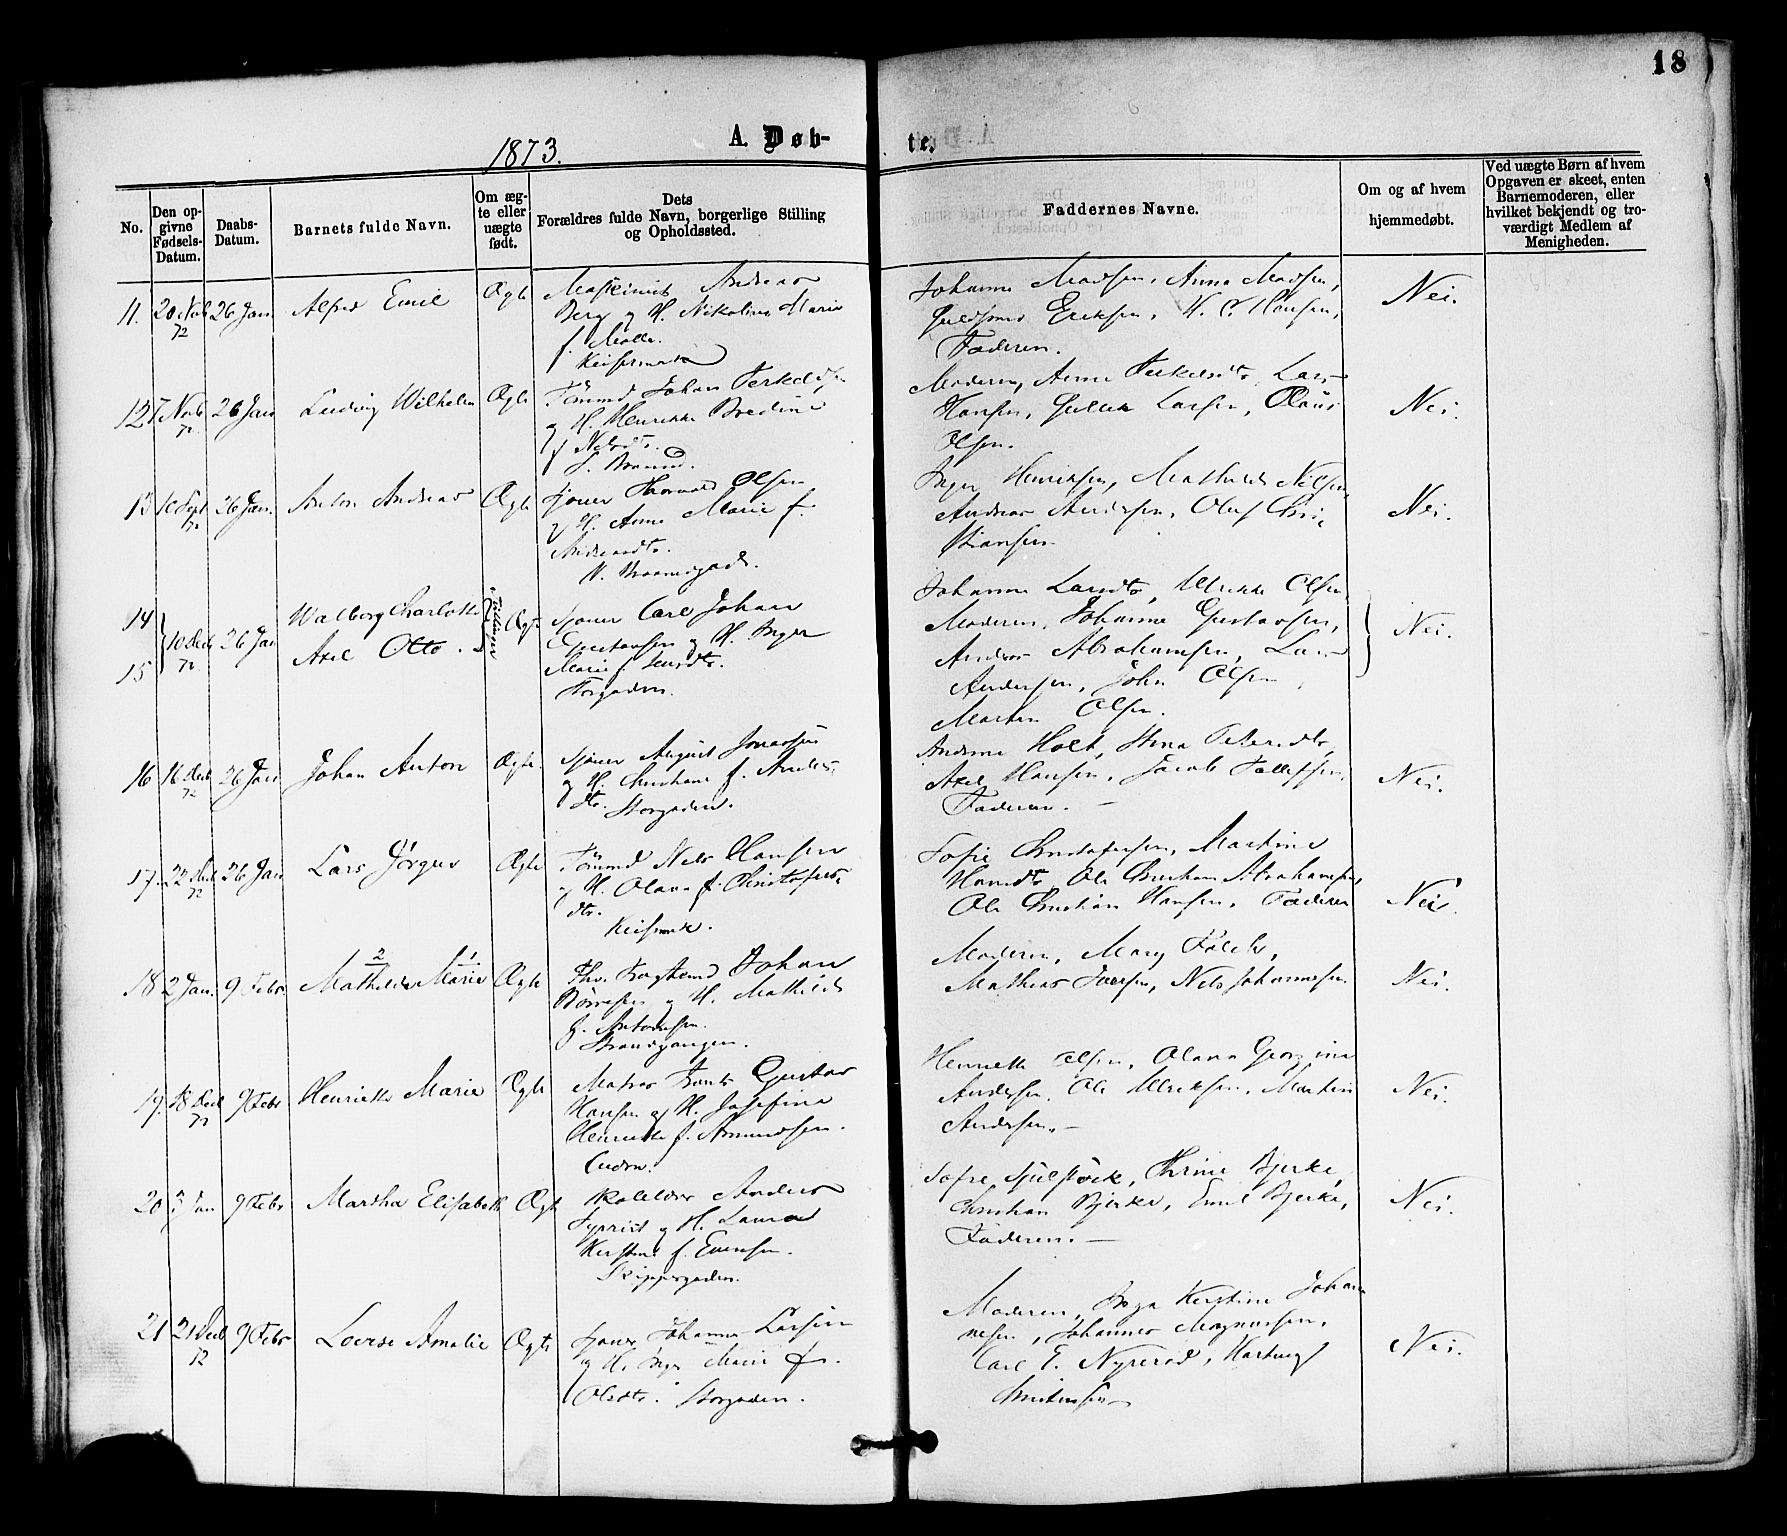 18
1873.
A. Døb-
te.
No.
Den op-
givne
Fødsels-
Datum.
Daabs-
Datum.
Barnets fulde Navn.
Om æg-
te eller
uægte
født.
Dets
Forældres fulde Navn, borgerlige Stilling
og Opholdssted.
Faddernes Navne.
Om og af hvem
hjemmedøbt.
Ved uægte Børn af hvem
Opgaven er skeet, enten
Barnemoderen, eller
hvilket bekjendt og tro-
værdigt Medlem af
Menigheden.
11. 20 Novb 72 26 Jan Alfred Emil Ægte
Maskinist Andreas
Berg og H. Nikoline Marie
f. Molle.
Johanne Madsen, Anna Madsen,
Guldsmed Eriksen, H. C. Hansen,
Faderen.
Nei.
12 7 Novb 72 26 Jan Ludvig Wilhelm Ægte
Tømmd Johan Terkelds
og H. Henrikke Bredine
f. Nelsdtr.
Moderen, Anne Terkelsdtr, Lars
Hansen, Larsen, Olaus
Olsen.
Nei.
13 10 Sept 72 26 Jan. Anton Andreas Ægte
Sjømr Thorvald Olsen
og H. Anne Marie f.
Andreasdtr.
Inger Henriksen, Mathilde Nilsen,
Andreas Andersen, Oluf Chri-
stiansen
Nei.
14
15
10 Decb 72 26 Jan
Walborg Charlotte
Axel Otto.
Tvillinger
Ægte
Sjømr Carl Johan
Gustavsen og H. Inger
Marie f. Larsdtr.
Torgaden.
Johanne Larsdtr, Ulrikke Olsen,
Moderen, Johanne Gustavsen,
Andreas Abrahamsen, Lars
Andersen, John Olsen,
Martin Olsen.
Nei.
16 16 Decb 72 26 Jan Johan Anton Ægte.
Sjømr August Jonassen
og H. Christiane f. Anders-
dtr. Storgaden.
Andrine Holt, Stina Petersdtr,
Axel Hansen, Jacob Tollefsen,
Faderen.
Nei.
17. 22 Decb 72 26 Jan Lars Jørgen Ægte
Tømmd Nels Hansen
og H. Olava f. Christofers-
dtr.
Sofie Christofersen, Martine
Hansdtr, Ole Christian Abrahamsen,
Ole Christian Hansen, Faderen
Nei.
18 2 Jan. 9 Febr. Mathilde Marie Ægte
2 1
Johan
Børresen og H. Mathilde
f. Antonsen.
Strandgangen.
Moderen, Mary Falck,
Mathias Iversen, Nels Johannessen
Nei.
19. 18 Decb 72 9 Febr Henriette Marie Ægte
Matros Gustav
Hansen og H. Josefine
Henriette f. Amundsen.
Henriette Olsen, Olava Georgine
Andersen, Ole Ulriksen, Martin
Andersen.
Nei.
20 Jan 9 Febr Martha Elisabeth Ægte
Anders
og H. Laura
Kerstine f. Evensen.
Skippergaden.
Sofie Thrine Bjerke,
Christian Bjerke, Emil Bjerke,
Faderen.
Nei.
21 21 Decb 72 9 Febr Lovise Amalie Ægte
Sjømr Johannes Larsen
og H. Inger Marie f.
Olsdtr. Storgaden.
Moderen, Inga Kerstine Johan-
nesen, Johannes Magnussen,
Carl E. Nyrerød, Hartvig
Christensen
Nei.